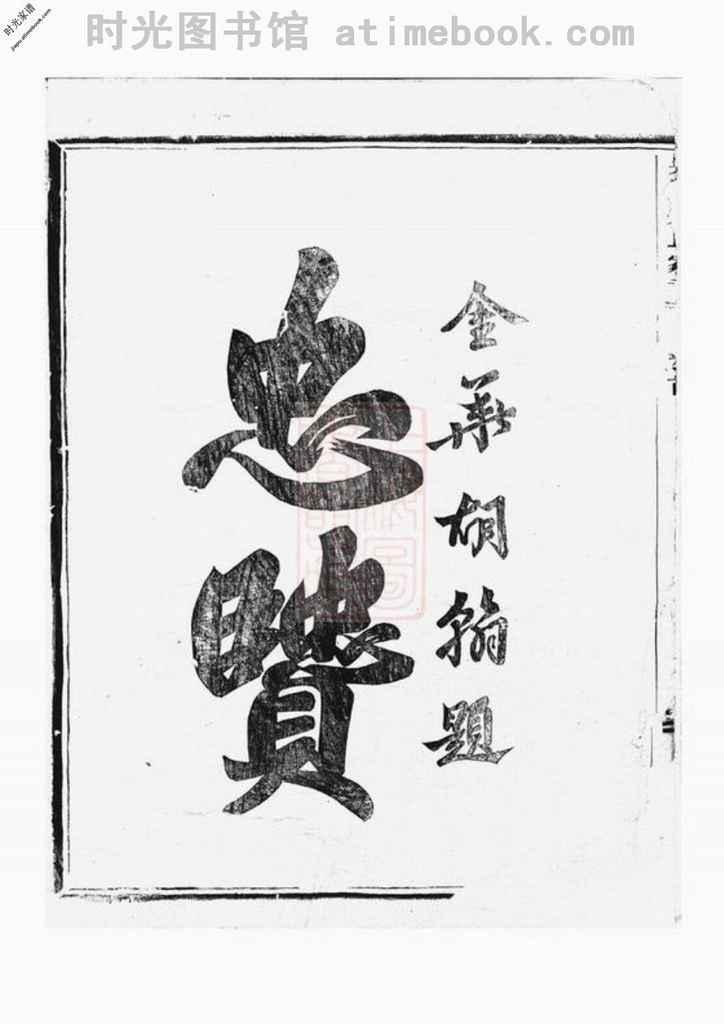 时光图书馆 atimebook.com
时光家谱
jiapu.atimebook.com
金華胡翰題
忠